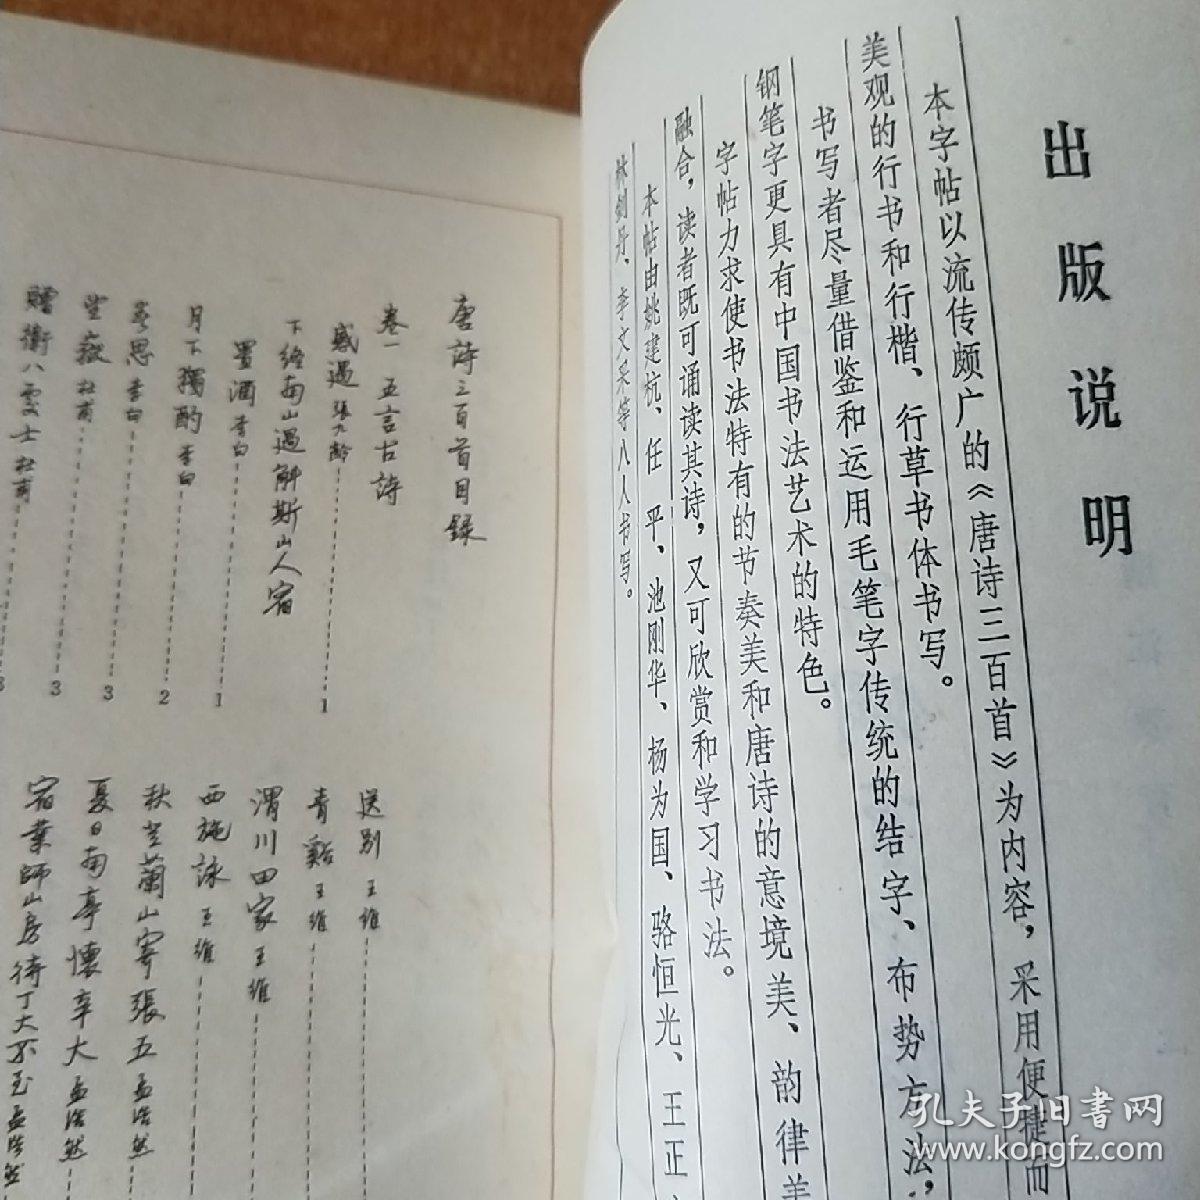 出版说明
本字帖以流传颇广的《唐诗三百首》为内容，采用便捷而
美观的行书和行楷、行草书体书写。
书写者尽量借鉴和运用毛笔字传统的结字、布势方法，
钢笔字更具有中国书法艺术的特色。
字帖力求使书法特有的节奏美和唐诗的意境美、韵律美
融合，读者既可诵读其诗，又可欣赏和学习书法。
本帖由姚建杭、任平、池刚华、杨为国、骆恒光、王正
林剑丹、李文采等八人书写。
唐詩三百首目録
卷一 五言古詩
感遇 張九齡 1
下終南山過斛斯山人宿
置酒 李白 1
月下獨酌 李白 2
春思 李白 3
望嶽 杜甫 3
贈衛八處士 杜甫 3
送别 王維
青谿 王維
渭川田家 王維
西施詠 王維
秋登蘭山寄張五 孟浩然
夏日南亭懷辛大 孟浩然
宿業師山房待丁大不至 孟浩然
孔夫子旧书网
www.kongfz.com